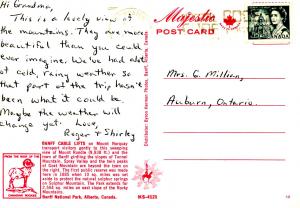 Hi Grandma,
This is a lovely view of
the mountains. They are more
beautiful than you could
ever imagine. We've had a lot
of cold, rainy weather so
that part of the trip hasn't
been what it could be.
Maybe the weather will
change yet. Love,
Roger & Shirley
Majestic
POST CARD
Mrs. C. Millian,
Auburn, Ontario.
BANFF CABLE LIFTS on Mount Norquay
transport visitors gently to this sweeping
view of Mount Rundle (9,838 ft.) and the
town of Banff girdling the slopes of Tunnel
Mountain. Spray Valley and the twin peaks
of Goat Mountain are beyond the town on
the right. The first public reserve was made
here in 1885 when 10 sq. miles was set
aside to protect the natural sulphur springs
on Sulphur Mountain. The Park extends for
2,564 sq. miles on east slope of the Rocky
Mountains.
Banff National Park, Alberta, Canada.
FROM THE HIGH OF THE
CANADIAN ROCKIES
Distributed: Byron Harmon Photos, Banff, Alberta, Canada.
MS-4525